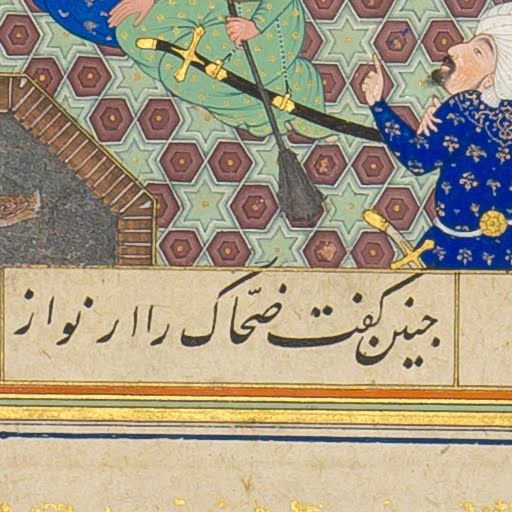 جنین کفت ضحّاک را ارنواز